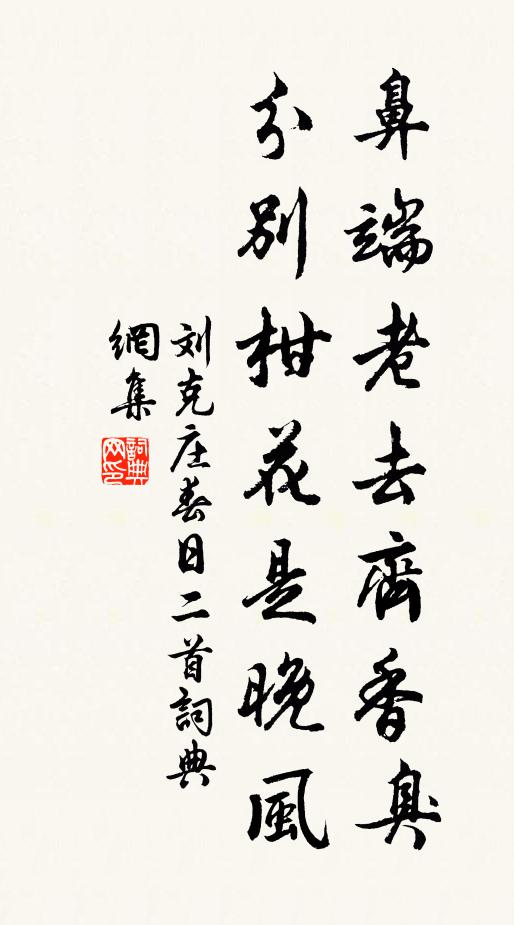 鼻端老去齊香臭
分別柑花是晚風
刘克庄春日二首詞典
網集
詞典
网印